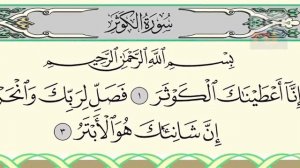 سُورَةُ الكَوثَرِ
بِسْمِ اللَّهِ الرَّحْمَٰنِ الرَّحِيمِ
إِنَّا أَعْطَيْنَاكَ الْكَوْثَرَ ١ فَصَلِّ لِرَبِّكَ وَانْحَرْ
إِنَّ شَانِئَكَ هُوَ الْأَبْتَرُ ٣